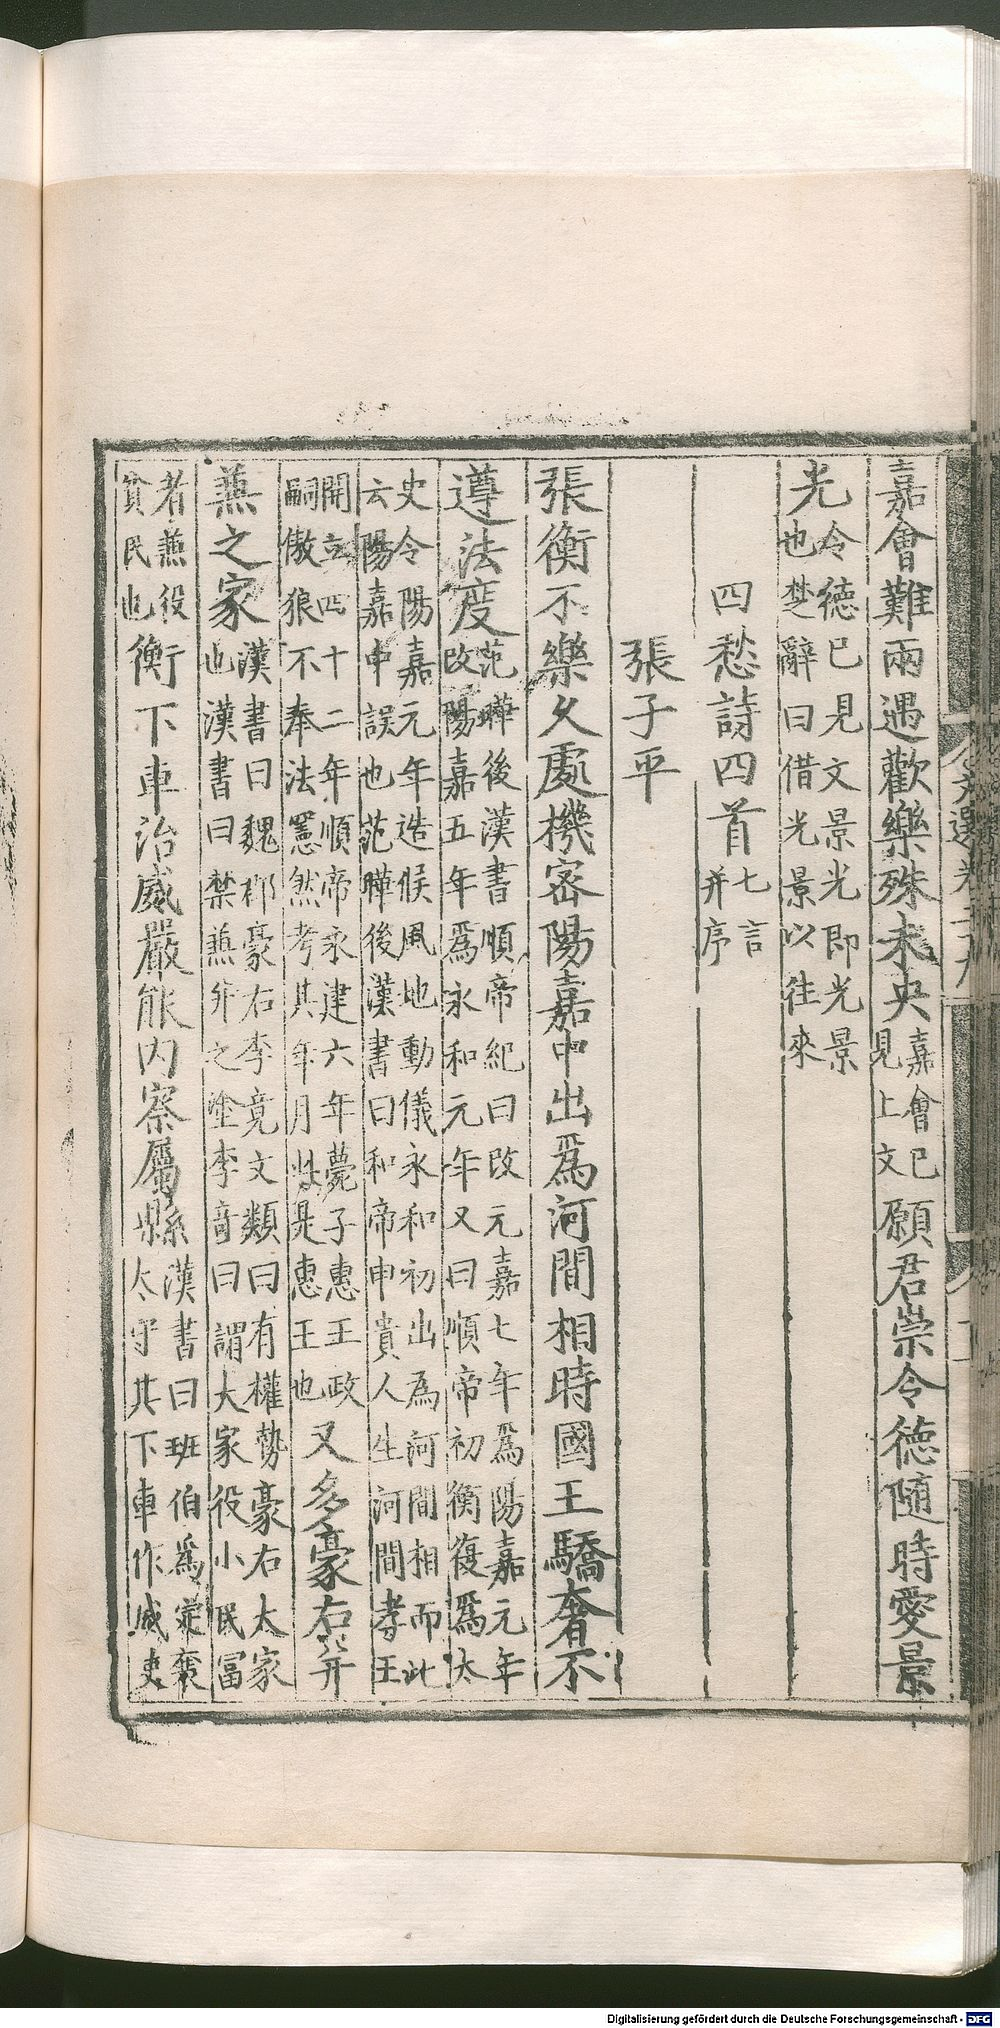 嘉會難兩遇歡樂殊未央嘉會已見上文願君崇令德隨時愛景
光令德已見文景光即光景也楚辭曰借光景以往來
四愁詩四首七言并序
張子平
張衡不樂久處機密陽嘉中出爲河間相時國王驕奢不
遵法度范曄後漢書順帝紀曰改元嘉七年爲陽嘉元年改陽嘉五年爲永和元年又曰順帝初衡復爲太
史令陽嘉元年造候風地動儀永和初出爲河間相而此云陽嘉中誤也范曄後漢書曰和帝申貴人生河間孝王
開立四十二年順帝永建六年薨子惠王政嗣傲狠不奉法憲然考其年月此是惠王也又多豪右并
兼之家漢書曰魏郡豪右李竟文類曰有權勢豪右大家也漢書曰禁兼并之塗李奇曰謂大家役小民富
者兼役貧民也衡下車治威嚴能內察屬縣漢書曰班伯爲定襄太守其下車作威吏
文選卷二十九
Digitalisierung gefördert durch die Deutsche Forschungsgemeinschaft - DFG